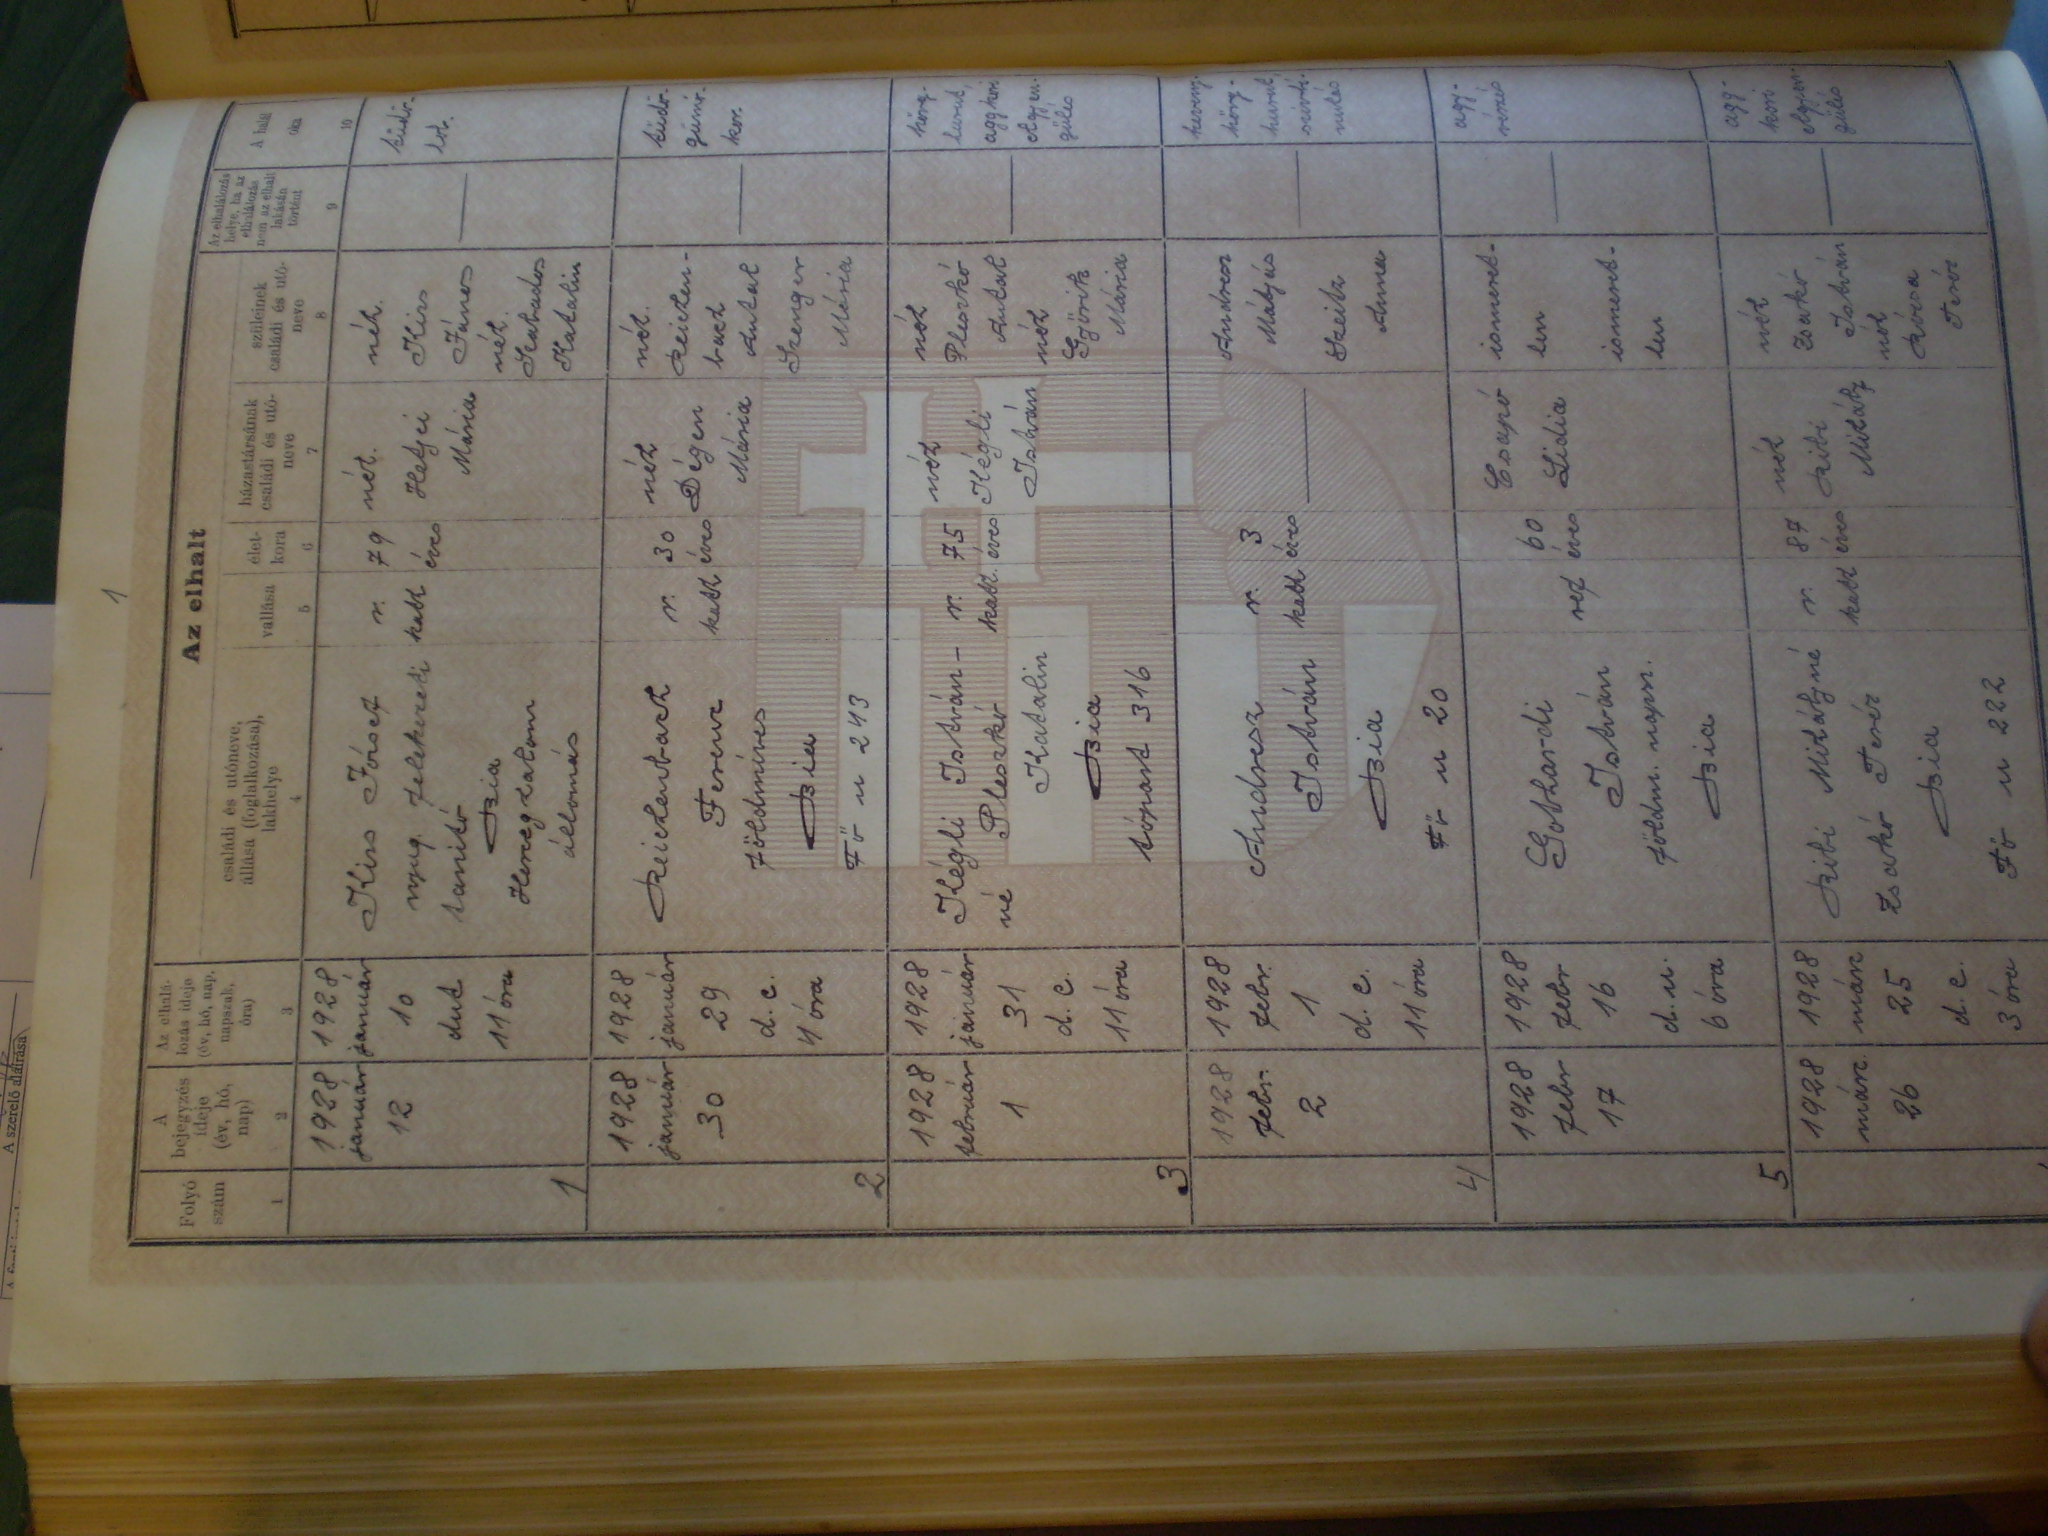 1
Az elhalt
Folyó
szám
A
bejegyzés
ideje
(év, hó,
nap)
Az elhalá-
lozás ideje
(év, hó, nap,
napszak,
óra)
családi és utóneve,
állása (foglalkozása),
lakhelye
vallása
élet-
kora
házastársának
családi és utó-
neve
szüleinek
családi és utó-
neve
Az elhalálozás
helye, ha az
elhalálozás
nem az elhalt
lakásán
történt
A halál
oka
1
2
3
4
5
6
7
8
9
10
1
1928
január
12
1928
január
10
dut
11 óra
Kiss József
nyug. felekezeti
tanító
Bia
Herceghalom
állomás
r.
kath
79
éves
néh.
Hetyei
Mária
néh.
Kiss
János
néh.
Szabados
Katalin
tüdő-
lob.
2
1928
január
30
1928
január
29
d. e.
4 óra
Reichenbach
Ferenc
földmíves
Bia
Fő u 243
r.
kath
30
éves
néh
Dégen
Mária
néh.
Reichen-
bach
Antal
Szenger
Mária
tüdő-
gümő-
kor.
3
1928
február
1
1928
január
31
d. e.
11 óra
Kégli István-
né Pleszkó
Katalin
Bia
tópart 316
r.
kath.
75
éves
néh
Kégli
István
néh
Pleszkó
Antal
néh
Györik
Mária
hörg-
hurut,
aggkori
elgyen-
gülés
4
1928
febr.
2
1928
febr.
1
d. e.
11 óra
Andresz
István
Bia
Fő u 20
r.
kath
3
éves
Andresz
Mátyás
Szeitz
Anna
hörg-
hurut,
5
1928
febr
17
1928
febr
16
d. u.
6 óra
Gothardi
István
földm. naps.
Bia
ref
60
éves
Csapó
Lidia
ismeret-
len
ismeret-
len
agy-
vérzés
1928
márc.
26
1928
márc
25
d. e.
3 óra
Ribi Mihályné
Zsarkó Teréz
Bia
Fő u 222
r.
kath
87
éves
néh
Ribi
Mihály
néh
Zsarkó
István
néh
Rózsa
Teréz
agg-
kori
elgyen-
gülés
A szerelő aláírása